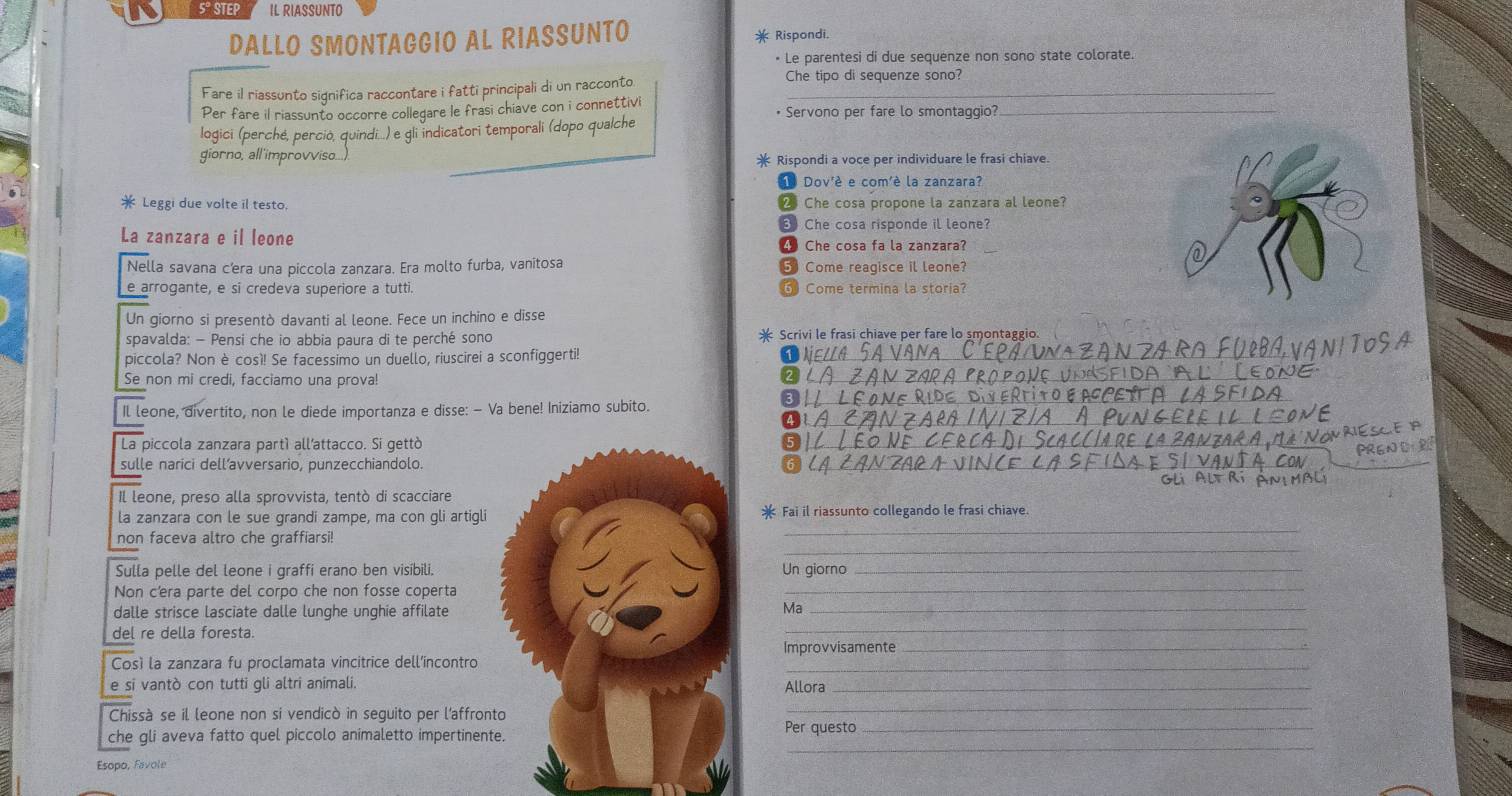 5° STEP IL RIASSUNTO
DALLO SMONTAGGIO AL RIASSUNTO
Fare il riassunto significa raccontare i fatti principali di un racconto.
Per fare il riassunto occorre collegare le frasi chiave con i connettivi
logici (perché, perciò, quindi...) e gli indicatori temporali (dopo qualche
giorno, all'improvviso...).
Leggi due volte il testo.
La zanzara e il leone
Nella savana c'era una piccola zanzara. Era molto furba, vanitosa
e arrogante, e si credeva superiore a tutti.
Un giorno si presentò davanti al leone. Fece un inchino e disse
spavalda: – Pensi che io abbia paura di te perché sono
piccola? Non è così! Se facessimo un duello, riuscirei a sconfiggerti!
Se non mi credi, facciamo una prova!
Il leone, divertito, non le diede importanza e disse: – Va bene! Iniziamo subito.
La piccola zanzara partì all'attacco. Si gettò
sulle narici dell'avversario, punzecchiandolo.
Il leone, preso alla sprovvista, tentò di scacciare
la zanzara con le sue grandi zampe, ma con gli artigli
non faceva altro che graffiarsi!
Sulla pelle del leone i graffi erano ben visibili.
Non c'era parte del corpo che non fosse coperta
dalle strisce lasciate dalle lunghe unghie affilate
del re della foresta.
Così la zanzara fu proclamata vincitrice dell'incontro
e si vantò con tutti gli altri animali.
Chissà se il leone non si vendicò in seguito per l'affronto
che gli aveva fatto quel piccolo animaletto impertinente.
Esopo, Favole
Rispondi.
• Le parentesi di due sequenze non sono state colorate.
Che tipo di sequenze sono?
• Servono per fare lo smontaggio?
Rispondi a voce per individuare le frasi chiave.
1 Dov'è e com'è la zanzara?
2 Che cosa propone la zanzara al leone?
3 Che cosa risponde il leone?
4 Che cosa fa la zanzara?
5 Come reagisce il leone?
6 Come termina la storia?
Scrivi le frasi chiave per fare lo smontaggio.
1 NELLA SAVANA C'ERA UNA ZANZARA FURBA, VANITOSA
2 LA ZANZARA PROPONE UNA SFIDA AL LEONE
3 IL LEONE RIDE DIVERTITO E ACCETTA LA SFIDA
4 LA ZANZARA INIZIA A PUNGERE IL LEONE
5 IL LEONE CERCA DI SCACCIARE LA ZANZARA, MA NON RIESCE A
PRENDER
6 LA ZANZARA VINCE LA SFIDA E SI VANTA CON
GLI ALTRI ANIMALI
Fai il riassunto collegando le frasi chiave.
Un giorno
Ma
Improvvisamente
Allora
Per questo